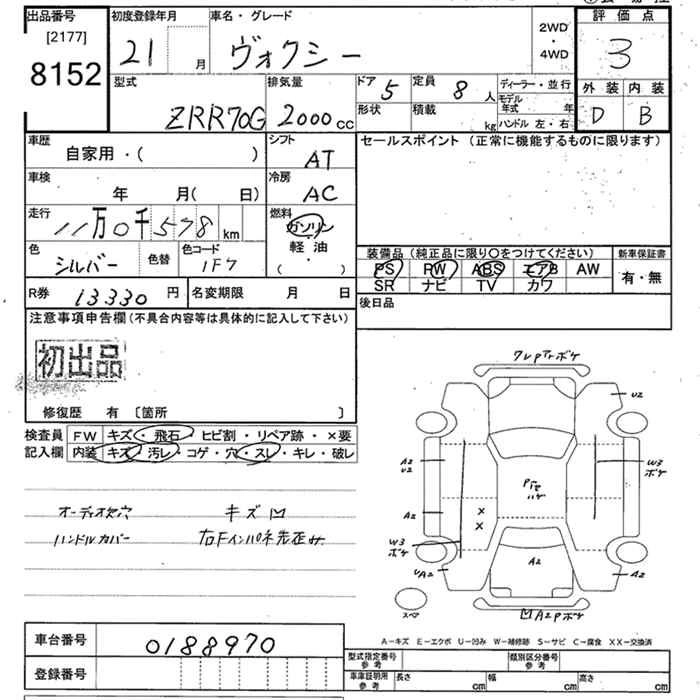 出品番号 初度登録年月 車名・グレード 2WD・4WD 評価点
[2177]
8152
21 月 ヴォクシー 3
型式 排気量 ドア 5 定員 8人 ディーラー・並行 外装 内装
ZRR70G 2000cc 形状 積載 kg モデル年式 年 D B
ハンドル 左・右
車歴 シフト セールスポイント (正常に機能するものに限ります)
自家用・( ) AT
車検 冷房
年 月( 日) AC
走行 燃料
11万0千578km ガソリン
軽油
( ・ )
色 シルバー 色替 色コード 1F7
装備品 (純正品に限り〇をつけてください) 新車保証書
PS PW ABS エアB AW 有・無
SR ナビ TV カワ
R券 13330円 名変期限 月 日 後日品
注意事項申告欄(不具合内容等は具体的に記入して下さい)
初出品
修復歴 有 〔箇所 〕
検査員 FW キズ・飛石・ヒビ割・リペア跡・×要
記入欄 内装 キズ・汚レ・コゲ・穴・スレ・キレ・破レ
キズ凹
ハンドルカバー
U2
A2
U2
W3
ボケ
A2
W3
ボケ
UA2
A2
A2
スペア
A－キズ E－エクボ U－凹み W－補修跡 S－サビ C－腐食 XX－交換済
車台番号 0188970
登録番号
型式指定番号 参考 類別区分番号 参考
車庫証明用 参考 長さ cm 幅 cm 高さ cm